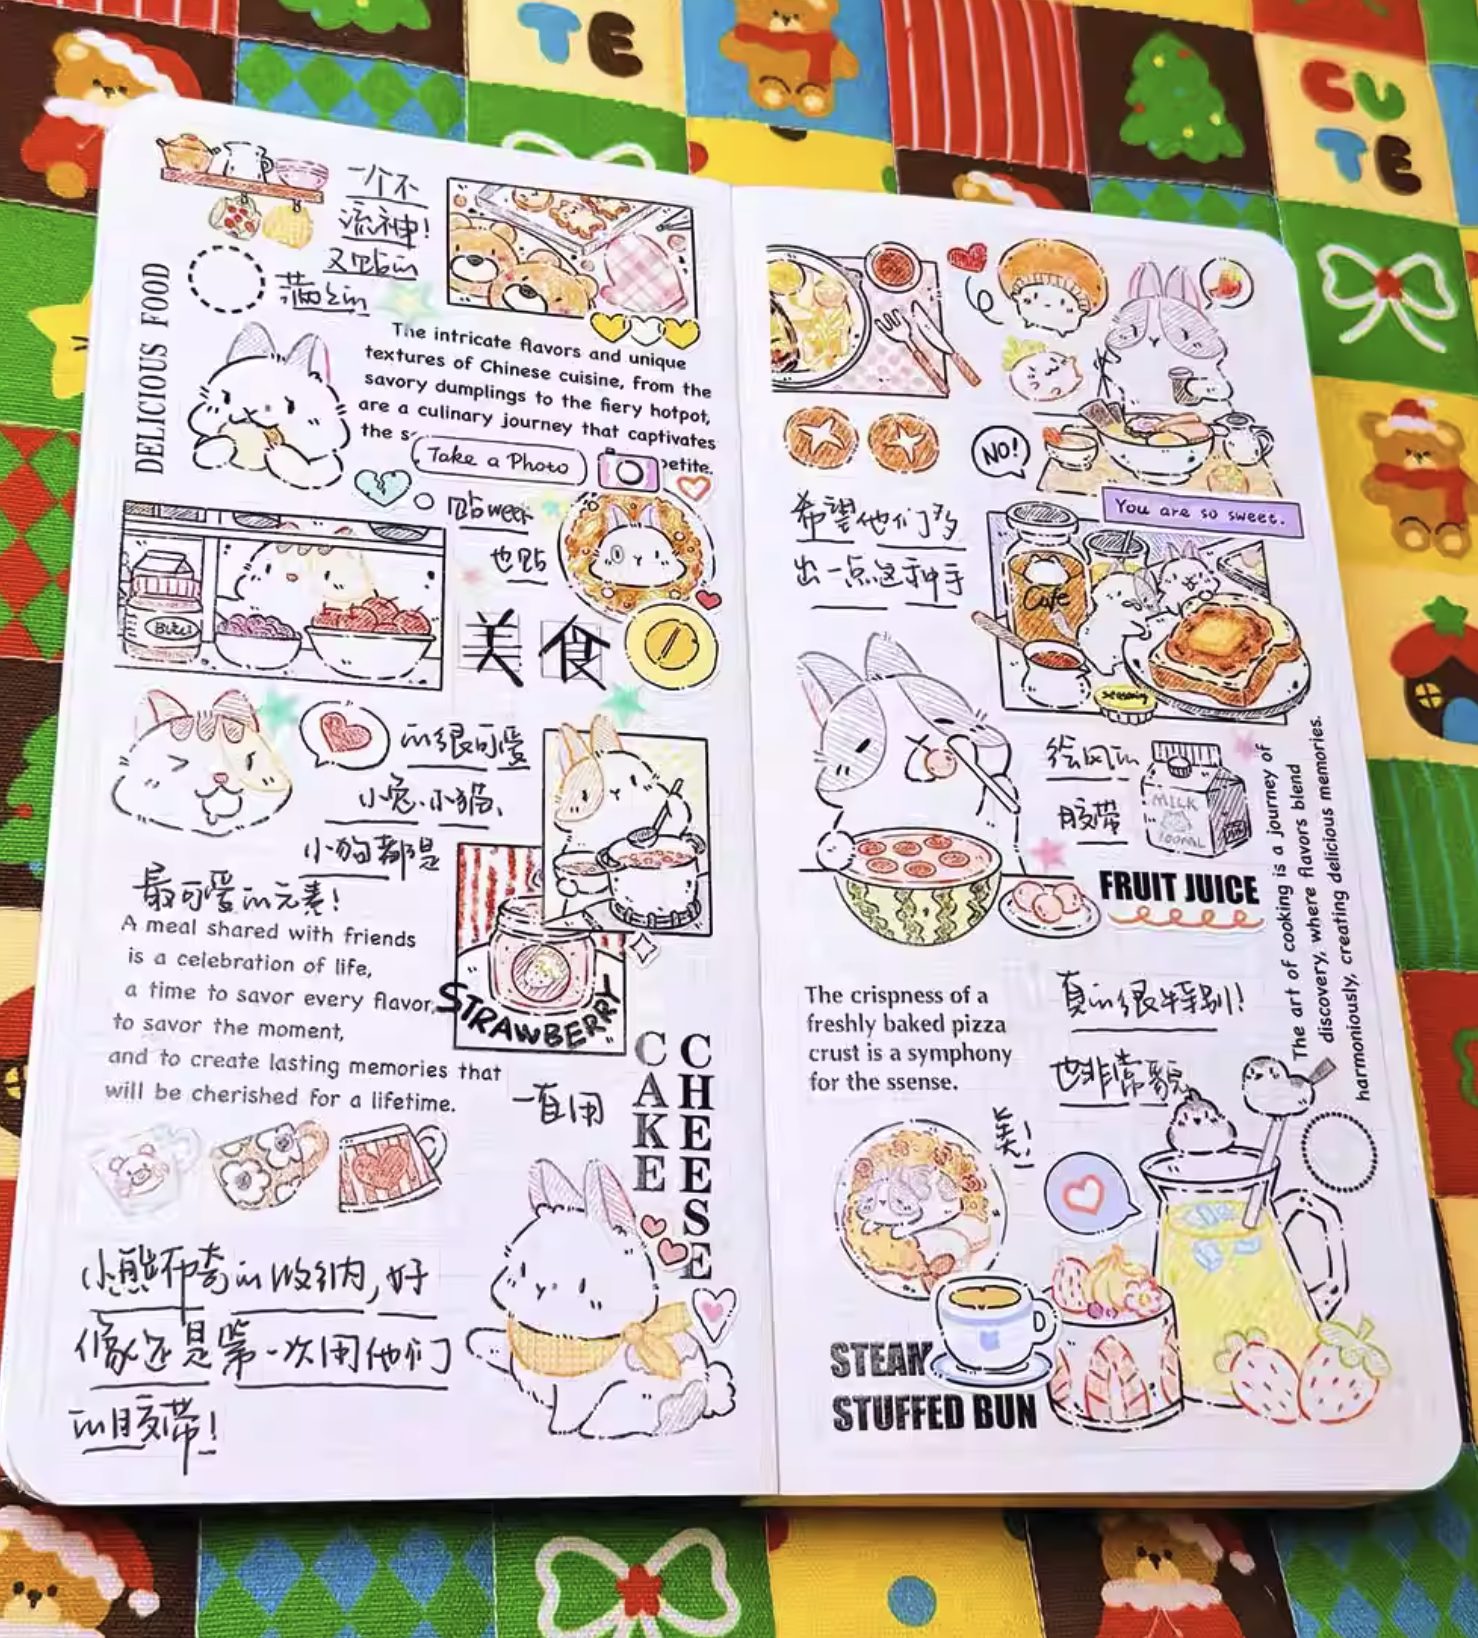 TE
CU
TE
一个不
流神！
又贴的
满满的
DELICIOUS FOOD
The intricate flavors and unique
textures of Chinese cuisine, from the
savory dumplings to the fiery hotpot,
are a culinary journey that captivates
the s
petite.
Take a Photo
贴week
也贴
美食
的很可爱
小兔、小猫、
小狗都是
最可爱的元素！
STRAWBERRY
A meal shared with friends
is a celebration of life,
a time to savor every flavor,
to savor the moment,
and to create lasting memories that
will be cherished for a lifetime.
一直用
CAKE
CHEESE
小熊布奇的收纳，好
像还是第一次用他们
的胶带！
NO!
希望他们多
出一点这种手
绘风的
胶带
You are so sweet.
Cafe
seasoning
MILK
1000ML
FRUIT JUICE
The art of cooking is a journey of
discovery, where flavors blend
harmoniously, creating delicious memories.
The crispness of a
freshly baked pizza
crust is a symphony
for the ssense.
真的很特别！
也非常
美！
STEAM
STUFFED BUN